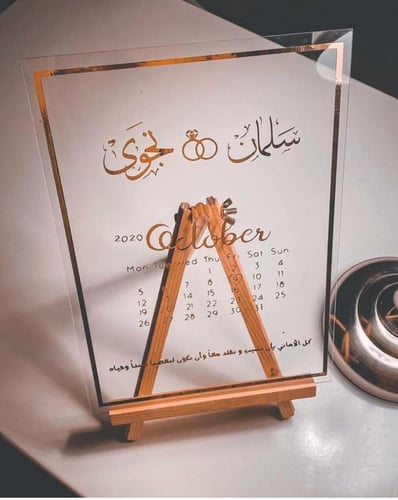 سَلمان نجوَى
2020 October
Mon Tue Wed Thu Fri Sat Sun
1 2 3 4
5 7 8 9 10 11
12 14 15 16 17 18
19 20 21 22 23 24 25
26 28 29 30 31
كل الأماني بأن نشيب و نخلد معاً وأن نكون لبعضنا سنداً وحياه